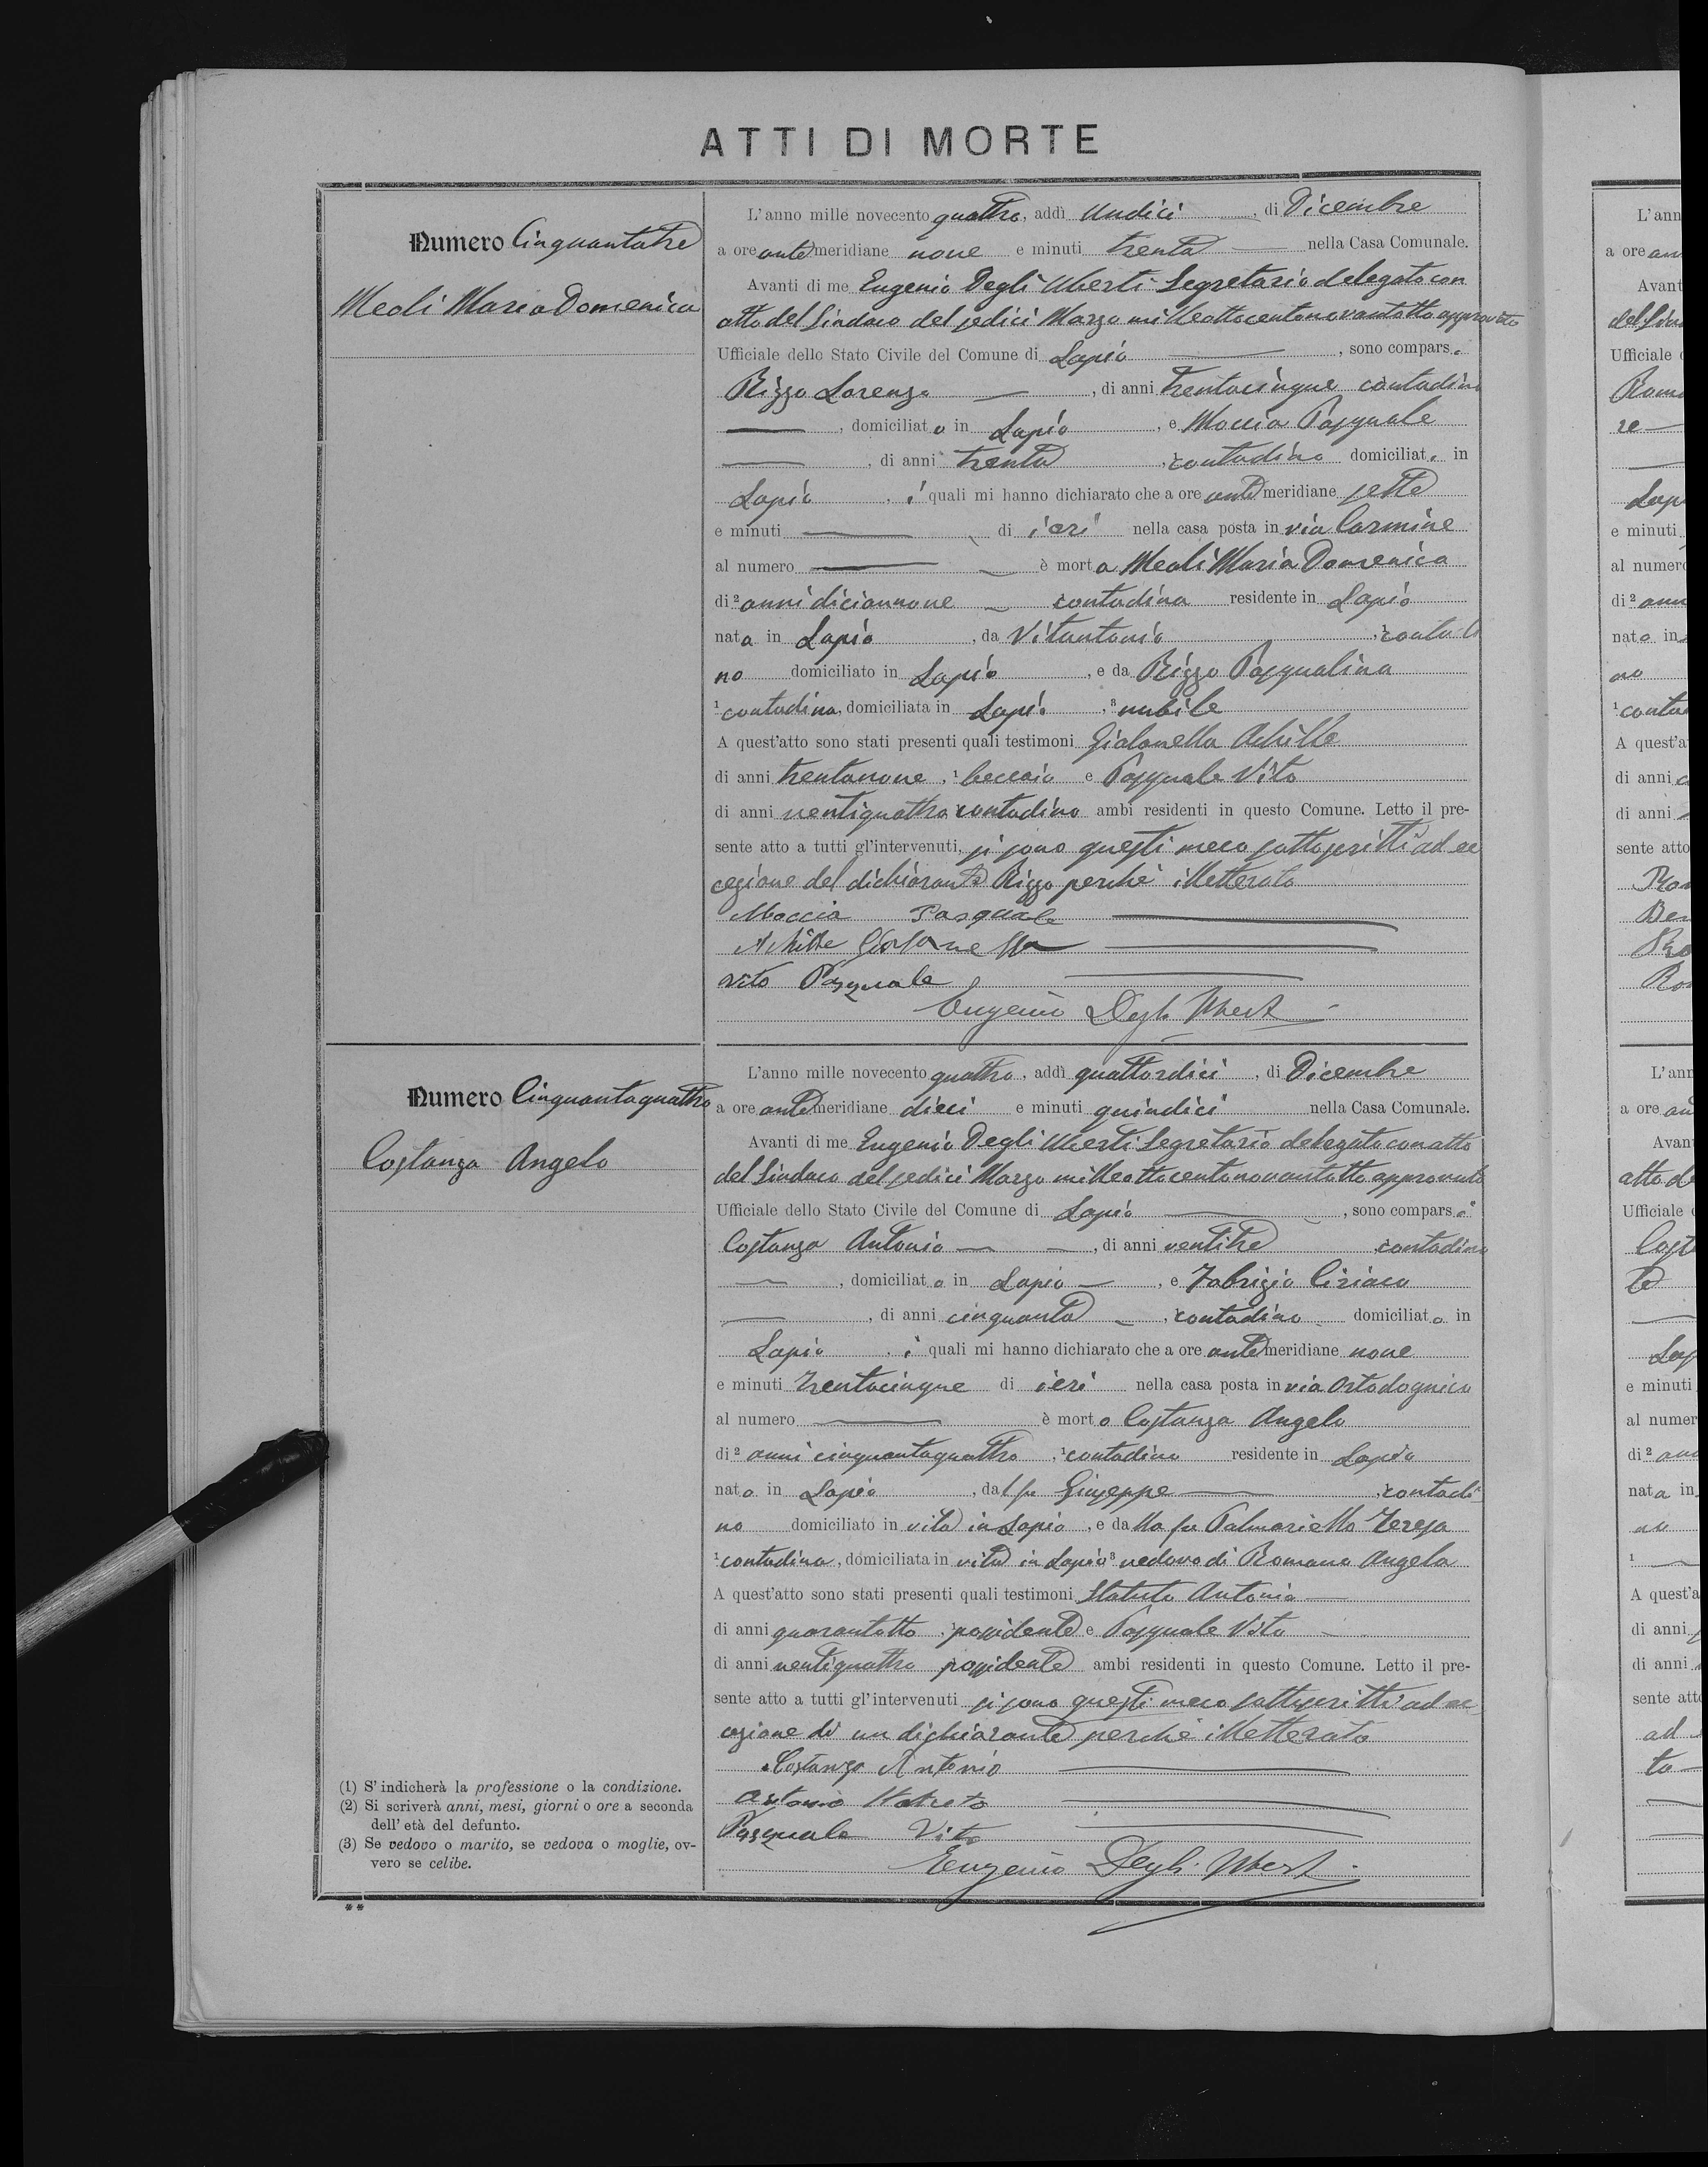 ATTI DI MORTE
Numero Cinquantatre
Meoli Maria Domenica
L'anno mille novecento quattro, addì undici, di Dicembre
a ore antemeridiane nove e minuti trenta nella Casa Comunale.
Avanti di me Eugenio Degli Uberti Segretario delegato con
atto del Sindaco del sedici Marzo milleottocentonovantotto approvato
Ufficiale dello Stato Civile del Comune di Lapio, sono comparsi
Rizzo Lorenzo, di anni trentacinque contadino
, domiciliato in Lapio, e Moccia Pasquale
, di anni trenta, contadino domiciliato in
Lapio, i quali mi hanno dichiarato che a ore antemeridiane sette
e minuti di ieri nella casa posta in via Carmine
al numero è morta Meoli Maria Domenica
di ² anni diciannove contadina residente in Lapio
nata in Lapio, da Vitantonio, ¹ contadi
no domiciliato in Lapio, e da Rizzo Pasqualina
¹ contadina, domiciliata in Lapio, ³ nubile
A quest'atto sono stati presenti quali testimoni Giofanella Achille
di anni trentanove, ¹ beccaio e Pasquale Vito
di anni ventiquattro contadino ambi residenti in questo Comune. Letto il pre-
sente atto a tutti gl'intervenuti, si sono questi meco sottoscritti ad ec
cezione del dichiarante Rizzo perchè illetterato
Moccia Pasquale
Achille Giofanella
Vito Pasquale
Eugenio Degli Uberti
Numero Cinquantaquattro
Costanza Angelo
L'anno mille novecento quattro, addì quattordici, di Dicembre
a ore antemeridiane dieci e minuti quindici nella Casa Comunale.
Avanti di me Eugenio Degli Uberti Segretario delegato con atto
del Sindaco del sedici Marzo milleottocentonovantotto approvato
Ufficiale dello Stato Civile del Comune di Lapio, sono comparsi
Costanza Antonio, di anni ventitre contadino
, domiciliato in Lapio, e Fabrizio Ciriaco
, di anni cinquanta, contadino domiciliato in
Lapio, i quali mi hanno dichiarato che a ore antemeridiane nove
e minuti trentacinque di ieri nella casa posta in via Ortodognico
al numero è morto Costanza Angelo
di ² anni cinquantaquattro, ¹ contadino residente in Lapio
nato in Lapio, dal fu Giuseppe, contadi
no domiciliato in vita in Lapio, e dalla fu Palmariello Teresa
¹ contadina, domiciliata in vita in Lapio ³ vedovo di Romano Angela
A quest'atto sono stati presenti quali testimoni Statuto Antonio
di anni quarantotto, possidente e Pasquale Vito
di anni ventiquattro possidente ambi residenti in questo Comune. Letto il pre-
sente atto a tutti gl'intervenuti si sono questi meco sottoscritti ad ec
cezione di un dichiarante perchè illetterato
Costanza Antonio
Antonio Statuto
Pasquale Vito
Eugenio Degli Uberti
(1) S'indicherà la professione o la condizione.
(2) Si scriverà anni, mesi, giorni o ore a seconda
dell'età del defunto.
(3) Se vedovo o marito, se vedova o moglie, ov-
vero se celibe.
**